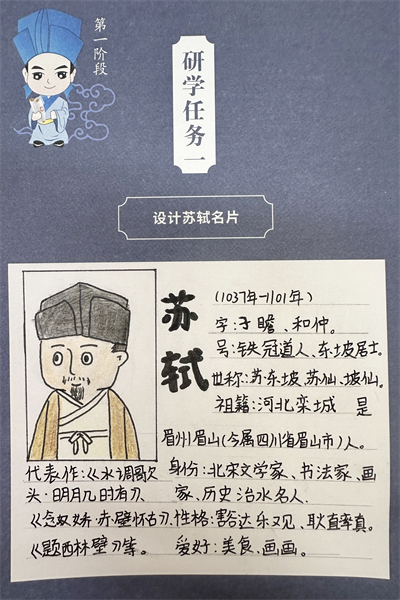 第一阶段
研学任务一
设计苏轼名片
苏轼
(1037年-1101年)
字:子瞻、和仲。
号:铁冠道人、东坡居士。
世称:苏东坡、苏仙、坡仙。
祖籍:河北栾城 是
眉州眉山(今属四川省眉山市)人。
身份:北宋文学家、书法家、画
家、历史治水名人.
性格:豁达乐观、耿直率真。
爱好:美食、画画。
代表作:《水调歌
头·明月几时有》
《念奴娇·赤壁怀古》
《题西林壁》等。